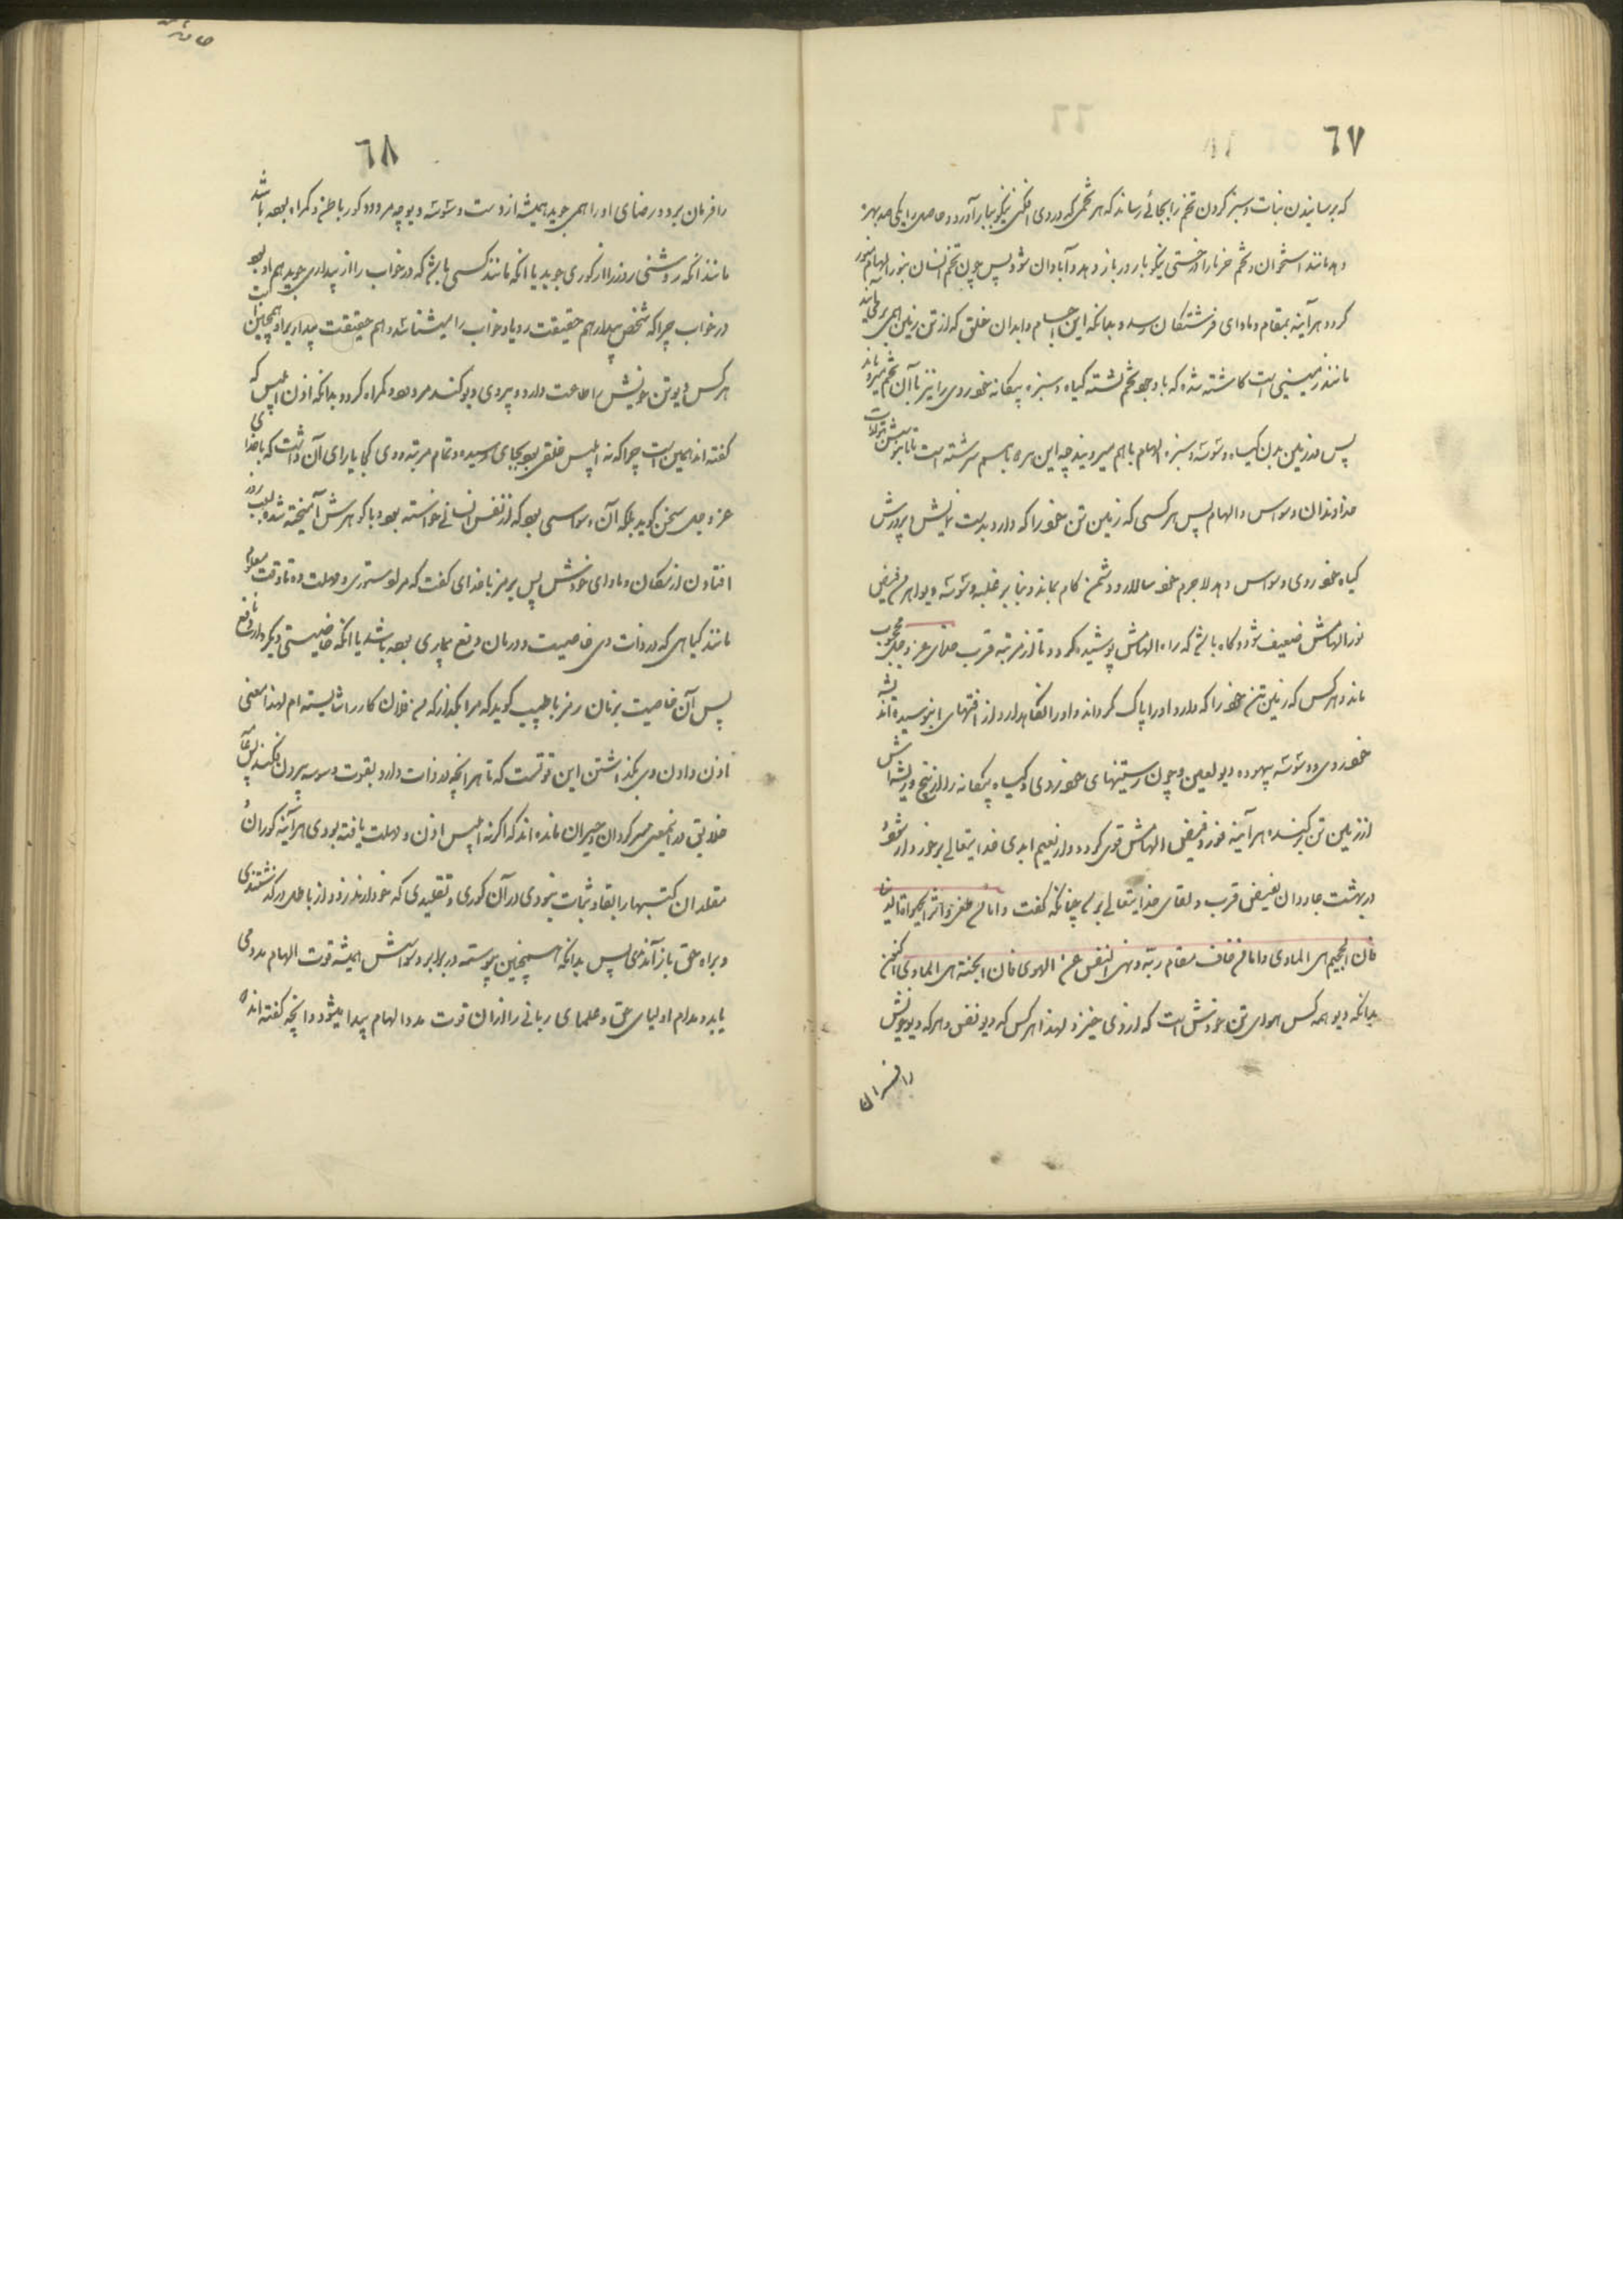 ٦٧
که برسانیدن نبات و سبز کردن تخم را بجائی رساند که هر تخمی که در وی افکنی نیکو ببار آورد و حاصل را یکی صد بهره
دهد مانند استخوان و تخم خرما را درختی نیکو بارور باز دهد و آبادان شود پس چون تخم انسان بنور الهام منور
کردد هرآینه بمقام و ماوای فرشتکان رسد و بدانکه این اجسام و ابدان خلق که از تن زمین همی بر می آیند
مانند زمینی است کاشته شده که با وجود تخم کشته کیاه و سبزه بیکانه خودروی را نیز با آن تخم میرویاند
پس در زمین بدن کیاه وسوسه و سبزه الهام با هم میرویند چه این هر دو با هم سرشته است
خداوندان وسواس و الهام پس هر کسی که زمین تن خود را که دارد بدست پرورش
کیاه خودروی وسواس دهد لاجرم خود سالار و دشمن کام بماند و بنا بر غلبه وسوسه دیو اهرمن فیض
نور الهامش ضعیف شود و کاه باشد که راه الهامش پوشیده کردد و تا از مرتبه قرب خدای عز و جل محجوب
ماند و هر کس که زمین تن خود را که دارد او را پاک کرداند و او را نکاهدارد و از آفتهای
خودروی و وسوسه بیهوده دیو لعین و چون رستنیهای خودروی و کیاه بیکانه را از بیخ و ریشه اش
از زمین تن برکند هرآینه نور و فیض الهامش قوی کردد و از نعیم ابدی خدایتعالی برخوردار شود
در بهشت جاودان بفیض قرب و لقای خدایتعالی برسد چنانکه گفت و اما من طغی و اثر الحیوة الدنیا
فان الجحیم هی الماوی و اما من خاف مقام ربه و نهی النفس عن الهوی فان الجنة هی الماوی اکنون
بدانکه دیو همه کس هوای تن خودش است که از وی خیزد لهذا هر کس که دیو نفس و هر که دیو خویش
را فرمان
٦٨
را فرمان برد و رضای او را همی جوید همیشه از دست وسوسه دیو چه مردود کور باطن و کمراه بوده باشد
مانند آنکه روشنی روز را از کوری جوید یا آنکه مانند کسی باشد که در خواب راز بیداری جوید هم او بود
در خواب چرا که شخص بیدار هم حقیقت رویا و خواب را میشناسد و هم حقیقت بیداریرا و همچنین است
هر کس دیو تن خویش را اطاعت دارد و پیروی دیو کند مردود و کمراه کردد و بدانکه اذن ابلیس که
گفته اند همین است چرا که نه ابلیس خلقی بود بجای رسیده و تمام مرتبه و وی کی یارای آن داشت که با خدای
عز و جل سخن کوید بلکه آن وسواسی بود که از نفس انسانی خواسته بود و با کوهرش آمیخته شده بسبب دور
افتادن از مکان و ماوای خودش پس برمز با خدای گفت که مرا دستوری و مهلت ده تا وقت معلوم
مانند کیاهی که در ذات وی خاصیت و درمان و نفع بیماری بوده باشد یا آنکه خاصیتی دیکر دارد نافع
پس آن خاصیت بزبان رمز با طبیب کوید که مرا بکذار که من فلان کار را شایسته ام لهذا معنی
اذن دادن وی بکذاشتن این قوتست که تا هر آنچه در ذات دارد بقوت وسوسه بیرون فکند پس
خلایق در این معنی سرکردان و حیران مانده اند که اکر نه ابلیس اذن و مهلت یافته بودی هرآینه کوران
مقلدان کتبها را بقا و ثبات نبودی در آن کوری و تقلیدی که خود دارند و از باطل درکذشتندی
و براه حق باز آمدندی پس بدانکه همچنین پیوسته در برابر وسواسش همیشه قوت الهام مدد می
یابد و مدام اولیای حق و علمای ربانی را از آن قوت مدد الهام پیدا میشود و آنچه گفته اند